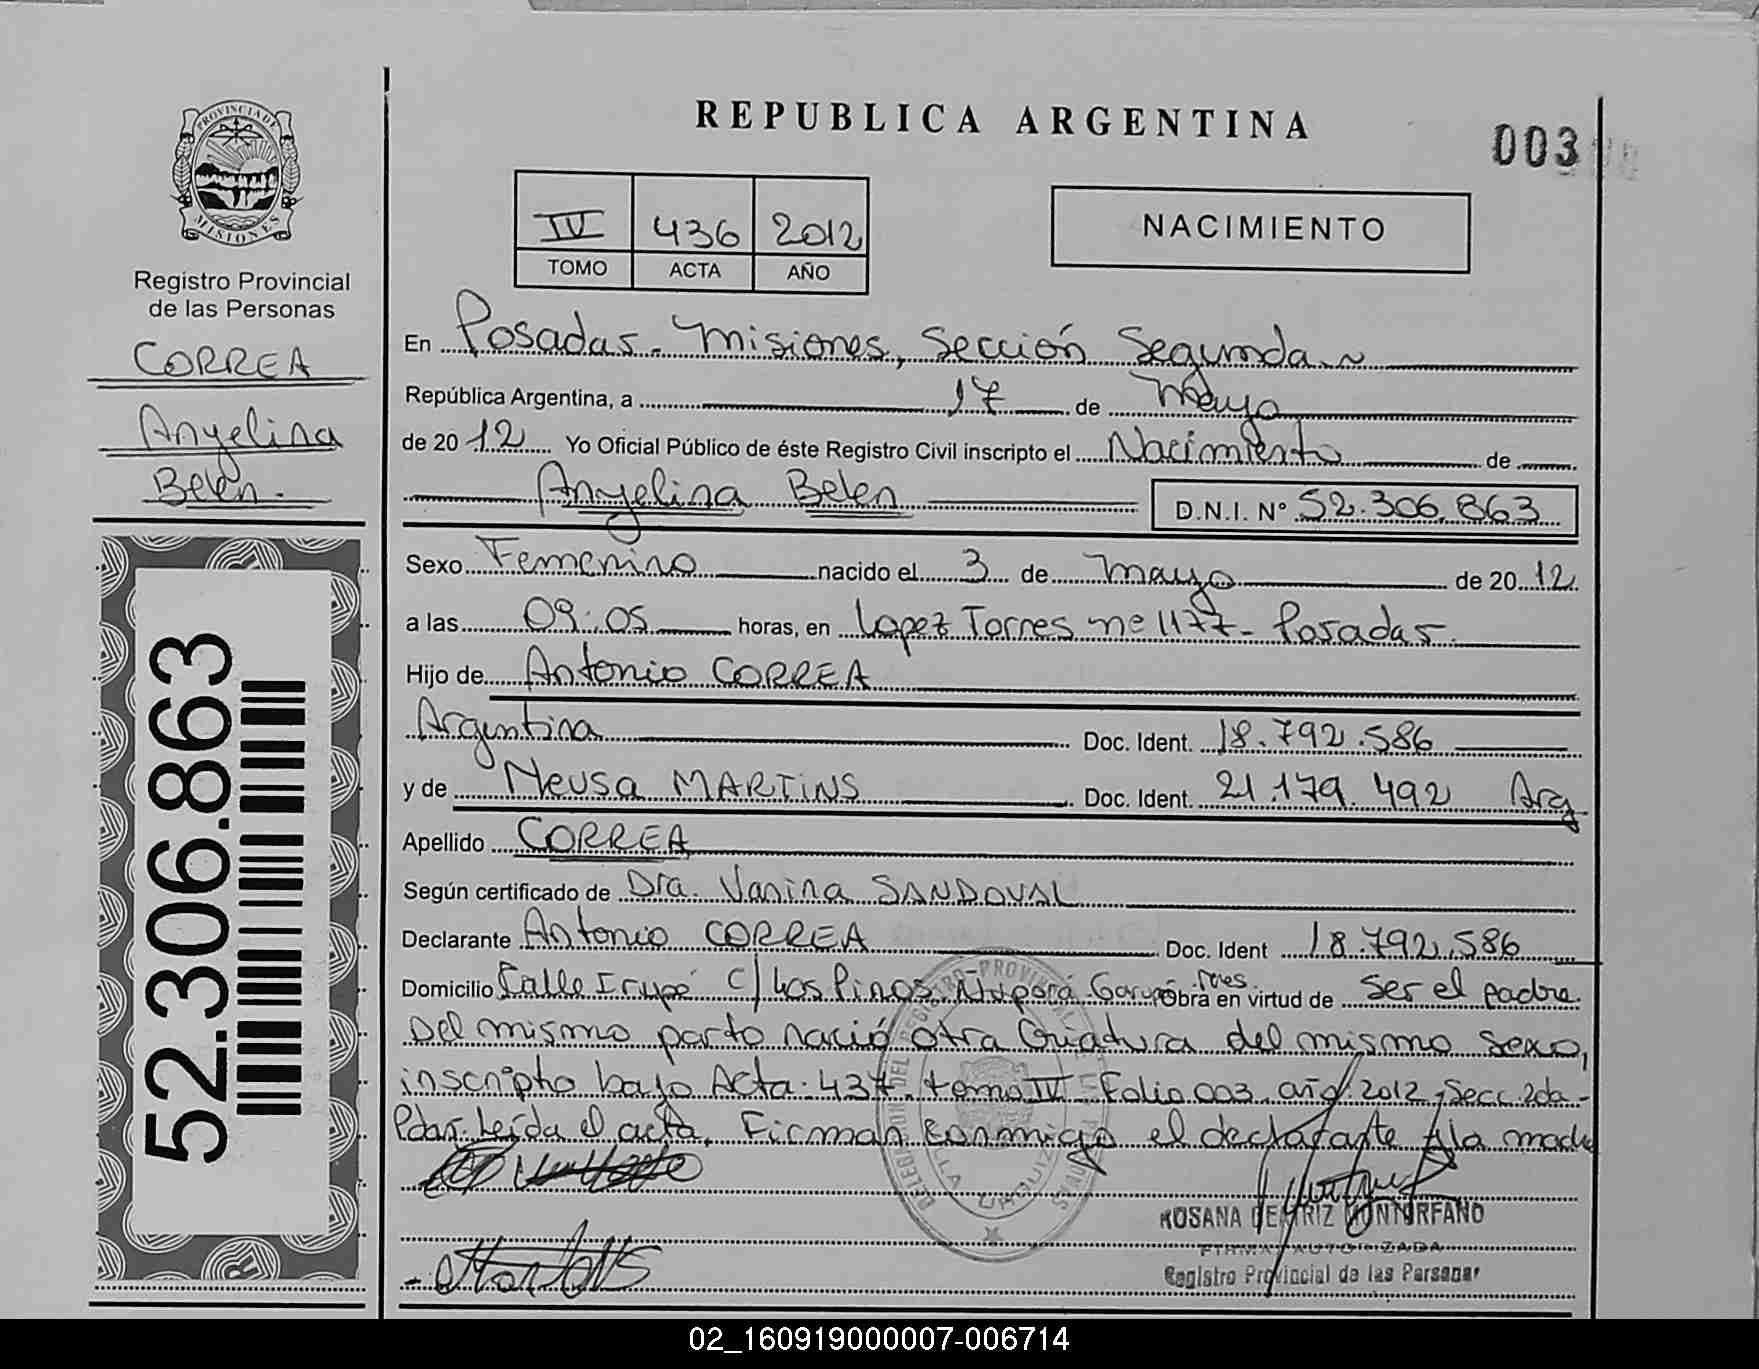 REPUBLICA ARGENTINA
003
PROVINCIA DE
MISIONES
Registro Provincial
de las Personas
CORREA
Angelina
Belen.
52.306.863
IV 436 2012
TOMO ACTA AÑO
NACIMIENTO
En Posadas. Misiones, Sección Segunda.
República Argentina, a 17 de Mayo
de 2012 Yo Oficial Público de éste Registro Civil inscripto el Nacimiento de
Angelina Belen D.N.I. N° 52.306.863
Sexo Femenino nacido el 3 de mayo de 2012
a las 09:05 horas, en Lopez Torres nº 1177 - Posadas.
Hijo de Antonio CORREA
Argentina Doc. Ident. 18.792.586
y de Neusa MARTINS Doc. Ident. 21.179.492 Arg
Apellido CORREA
Según certificado de Dra. Vanina SANDOVAL
Declarante Antonio CORREA Doc. Ident 18.792.586
Domicilio Calle Irupé C/ Los Pinos, Ñuporá Garupá Mnes. Obra en virtud de ser el padre.
Del mismo parto nació otra Criatura del mismo sexo,
inscripto bajo Acta: 437, tomo IV Folio 003, año 2012, Secc 2da-
Pdas. Leída el acta, Firman conmigo el declarante y la madre
ROSANA BEATRIZ MONTORFANO
FIRMA AUTORIZADA
Registro Provincial de las Personas
VILLA URQUIZA
02_160919000007-006714